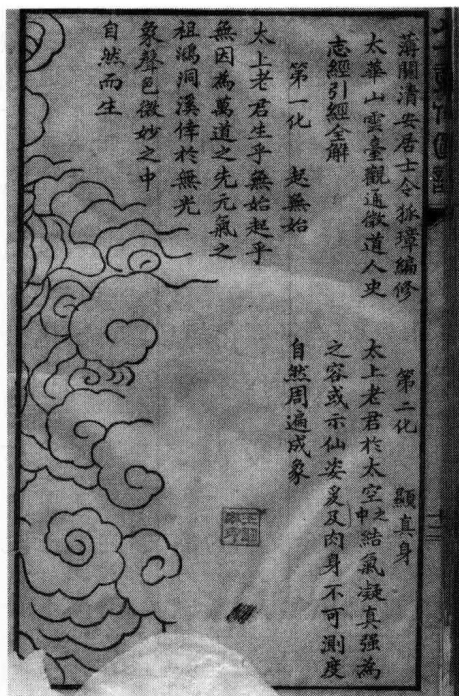 薄關清安居士令狐璋編修
太華山雲臺觀通微道人史
志經引經全解
第一化 起無始
太上老君生乎無始起乎
無因為萬道之先元氣之
祖鴻洞溪倖於無光
象聲色微妙之中
自然而生
第二化 顯真身
太上老君於太空之中結氣凝真强為
之容或示仙姿爰及肉身不可測度
自然周遍成象